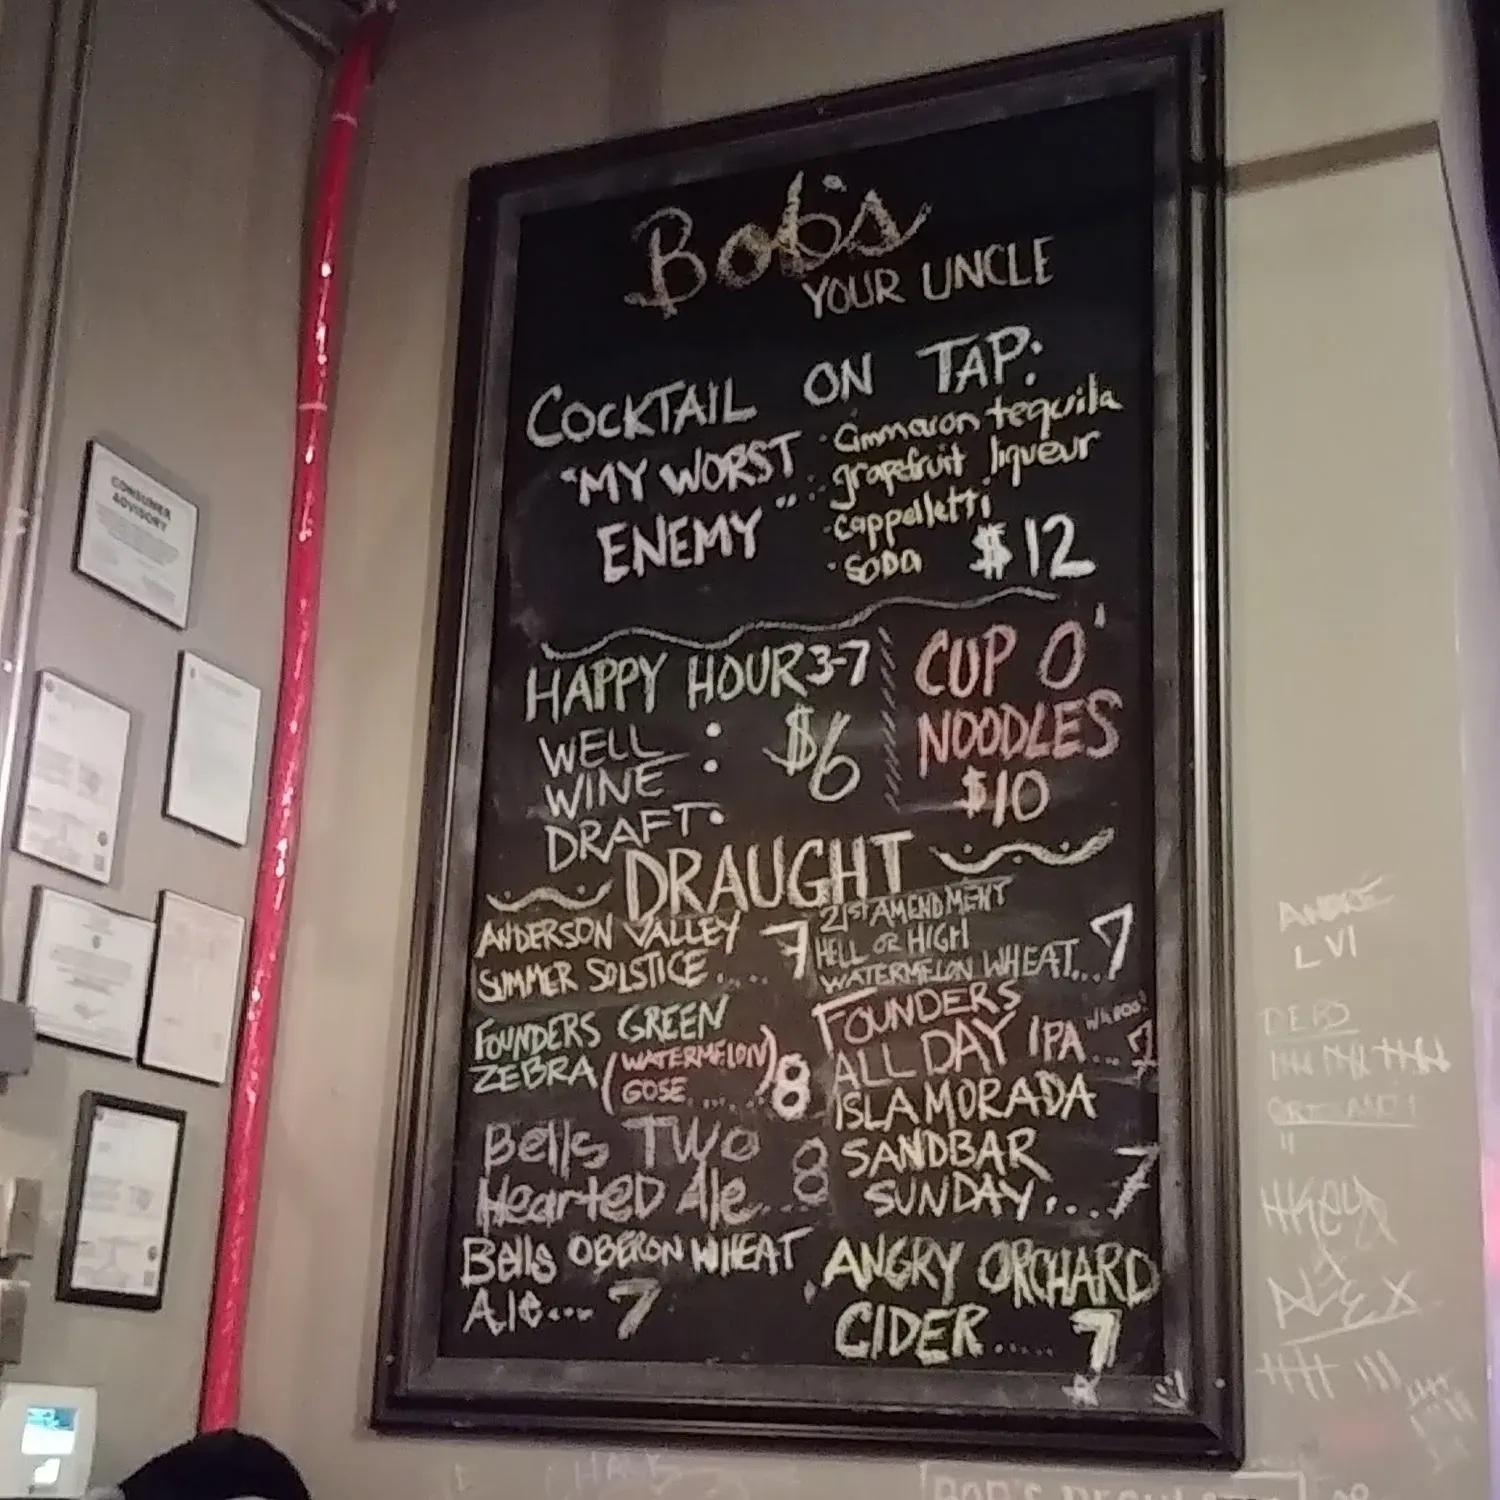 Bob's
YOUR UNCLE
COCKTAIL ON TAP:
"MY WORST
ENEMY"
· Cimmaron tequila
· grapefruit liqueur
· cappelletti
· SODA
$12
HAPPY HOUR 3-7
WELL :
WINE
DRAFT·
$6
CUP O'
NOODLES
$10
DRAUGHT
ANDERSON VALLEY
SUMMER SOLSTICE .... 7
FOUNDERS GREEN
ZEBRA (WATERMELON
GOSE ......) 8
Bells TWO
HeartED Ale... 8
Bells OBERON WHEAT
Ale... 7
21ST AMENDMENT
HELL OR HIGH
WATERMELON WHEAT... 7
FOUNDERS
ALL DAY IPA... 7
ISLAMORADA
SANDBAR
SUNDAY.... 7
ANGRY ORCHARD
CIDER..... 7
CONSUMER
ADVISORY
ANDRE
LVI
DEBS
ALEX